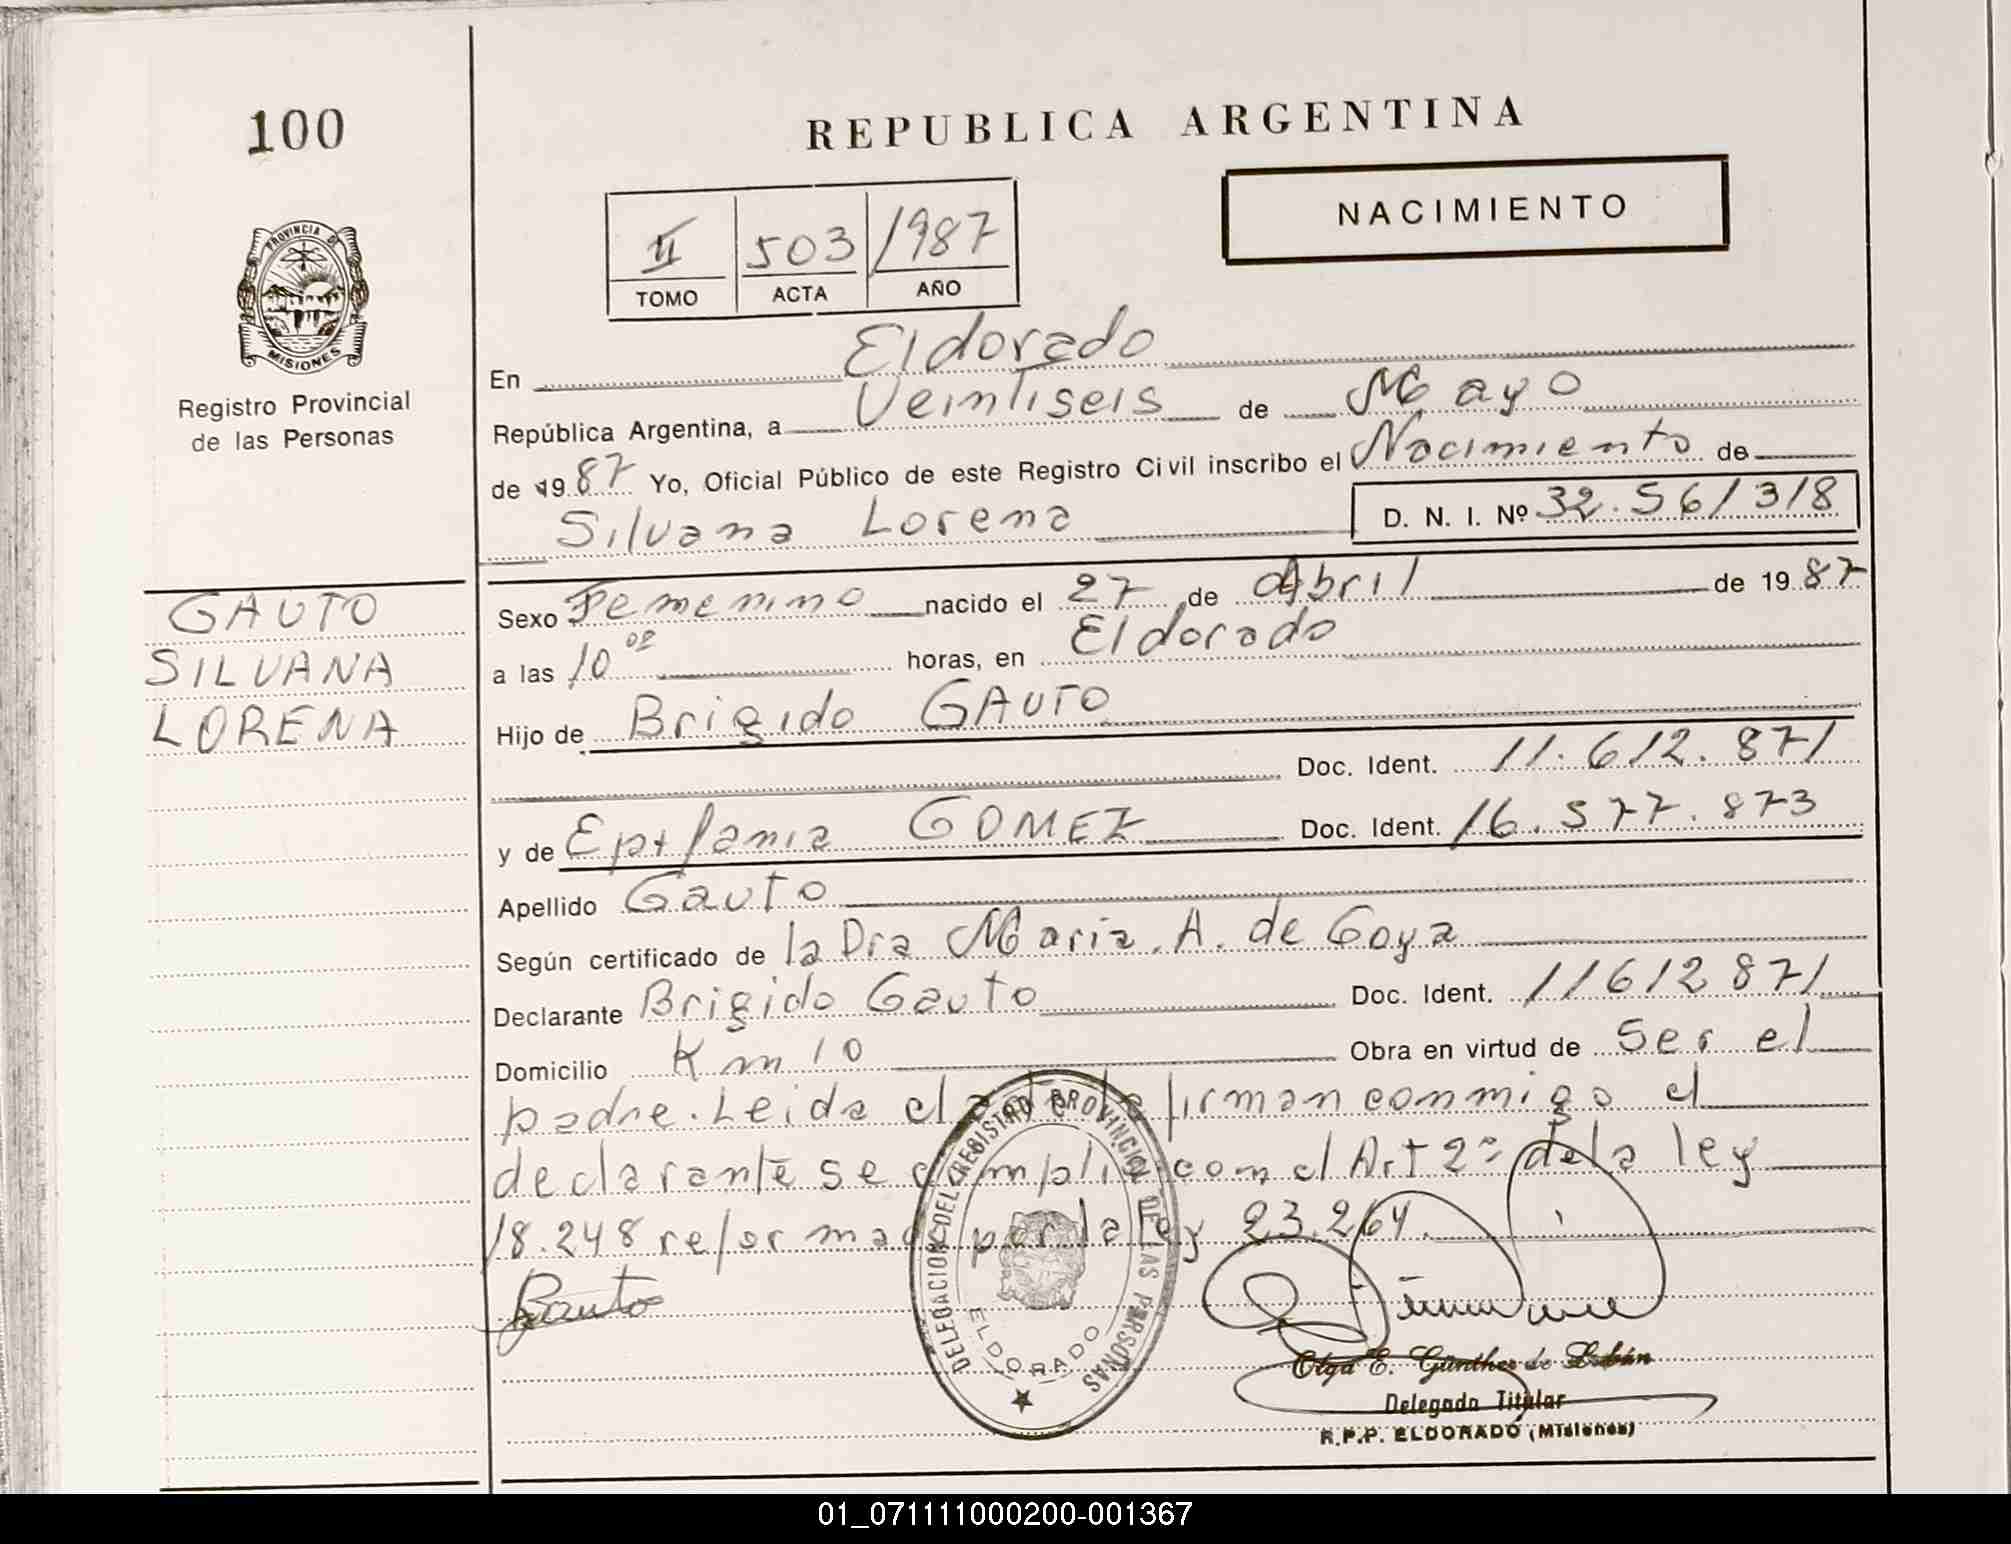 100
REPUBLICA ARGENTINA
NACIMIENTO
II 503 1987
TOMO ACTA AÑO
PROVINCIA DE
MISIONES
Registro Provincial
de las Personas
En Eldorado
República Argentina, a Veintiseis de Mayo
de 19 87 Yo, Oficial Público de este Registro Civil inscribo el Nacimiento de
Silvana Lorena D. N. I. Nº 32.561318
GAUTO
SILVANA
LORENA
Sexo Femenino nacido el 27 de Abril de 19 87
a las 10 horas, en Eldorado
Hijo de Brigido GAUTO
Doc. Ident. 11.612.871
y de Epifania GOMEZ Doc. Ident. 16.577.873
Apellido Gauto
Según certificado de la Dra Maria A. de Goya
Declarante Brigido Gauto Doc. Ident. 11612871
Domicilio Km 10 Obra en virtud de Ser el
padre. Leida el acta la firman conmigo el
declarante se cumplio con el Art 2º de la ley
18.248 reformada por la ley 23.264.
Gauto
DELEGACION DEL REGISTRO PROVINCIAL DE LAS PERSONAS
ELDORADO
Olga E. Günther de
Delegada Titular
R.P.P. ELDORADO (Misiones)
01_071111000200-001367